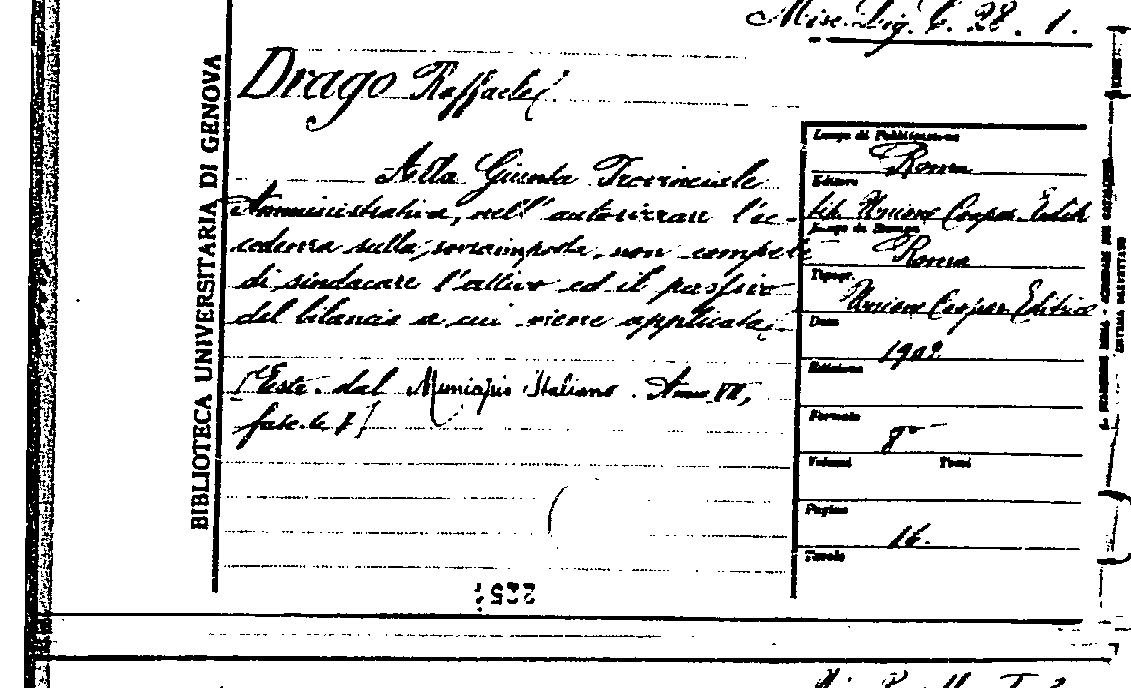 Misc. Lig. C. 28. 1.
BIBLIOTECA UNIVERSITARIA DI GENOVA
Drago Raffaele
Alla Giunta Provinciale
Amministrativa, nell' autorizzare l'ec-
cedenza sulla sovraimposta, non compete
di sindacare l'attivo ed il passivo
del bilancio a cui viene applicata.
[Estr. dal Municipio Italiano. Anno VII,
fasc. 7]
Luogo di Pubblicazione
Roma
Editore
tip. Unione Cooper. Editr.
Luogo di Stampa
Roma
Tipogr.
Unione Cooper. Editrice
Data
Edizione
Formato
8º
Volumi Tomi
Pagine
16.
Tavole